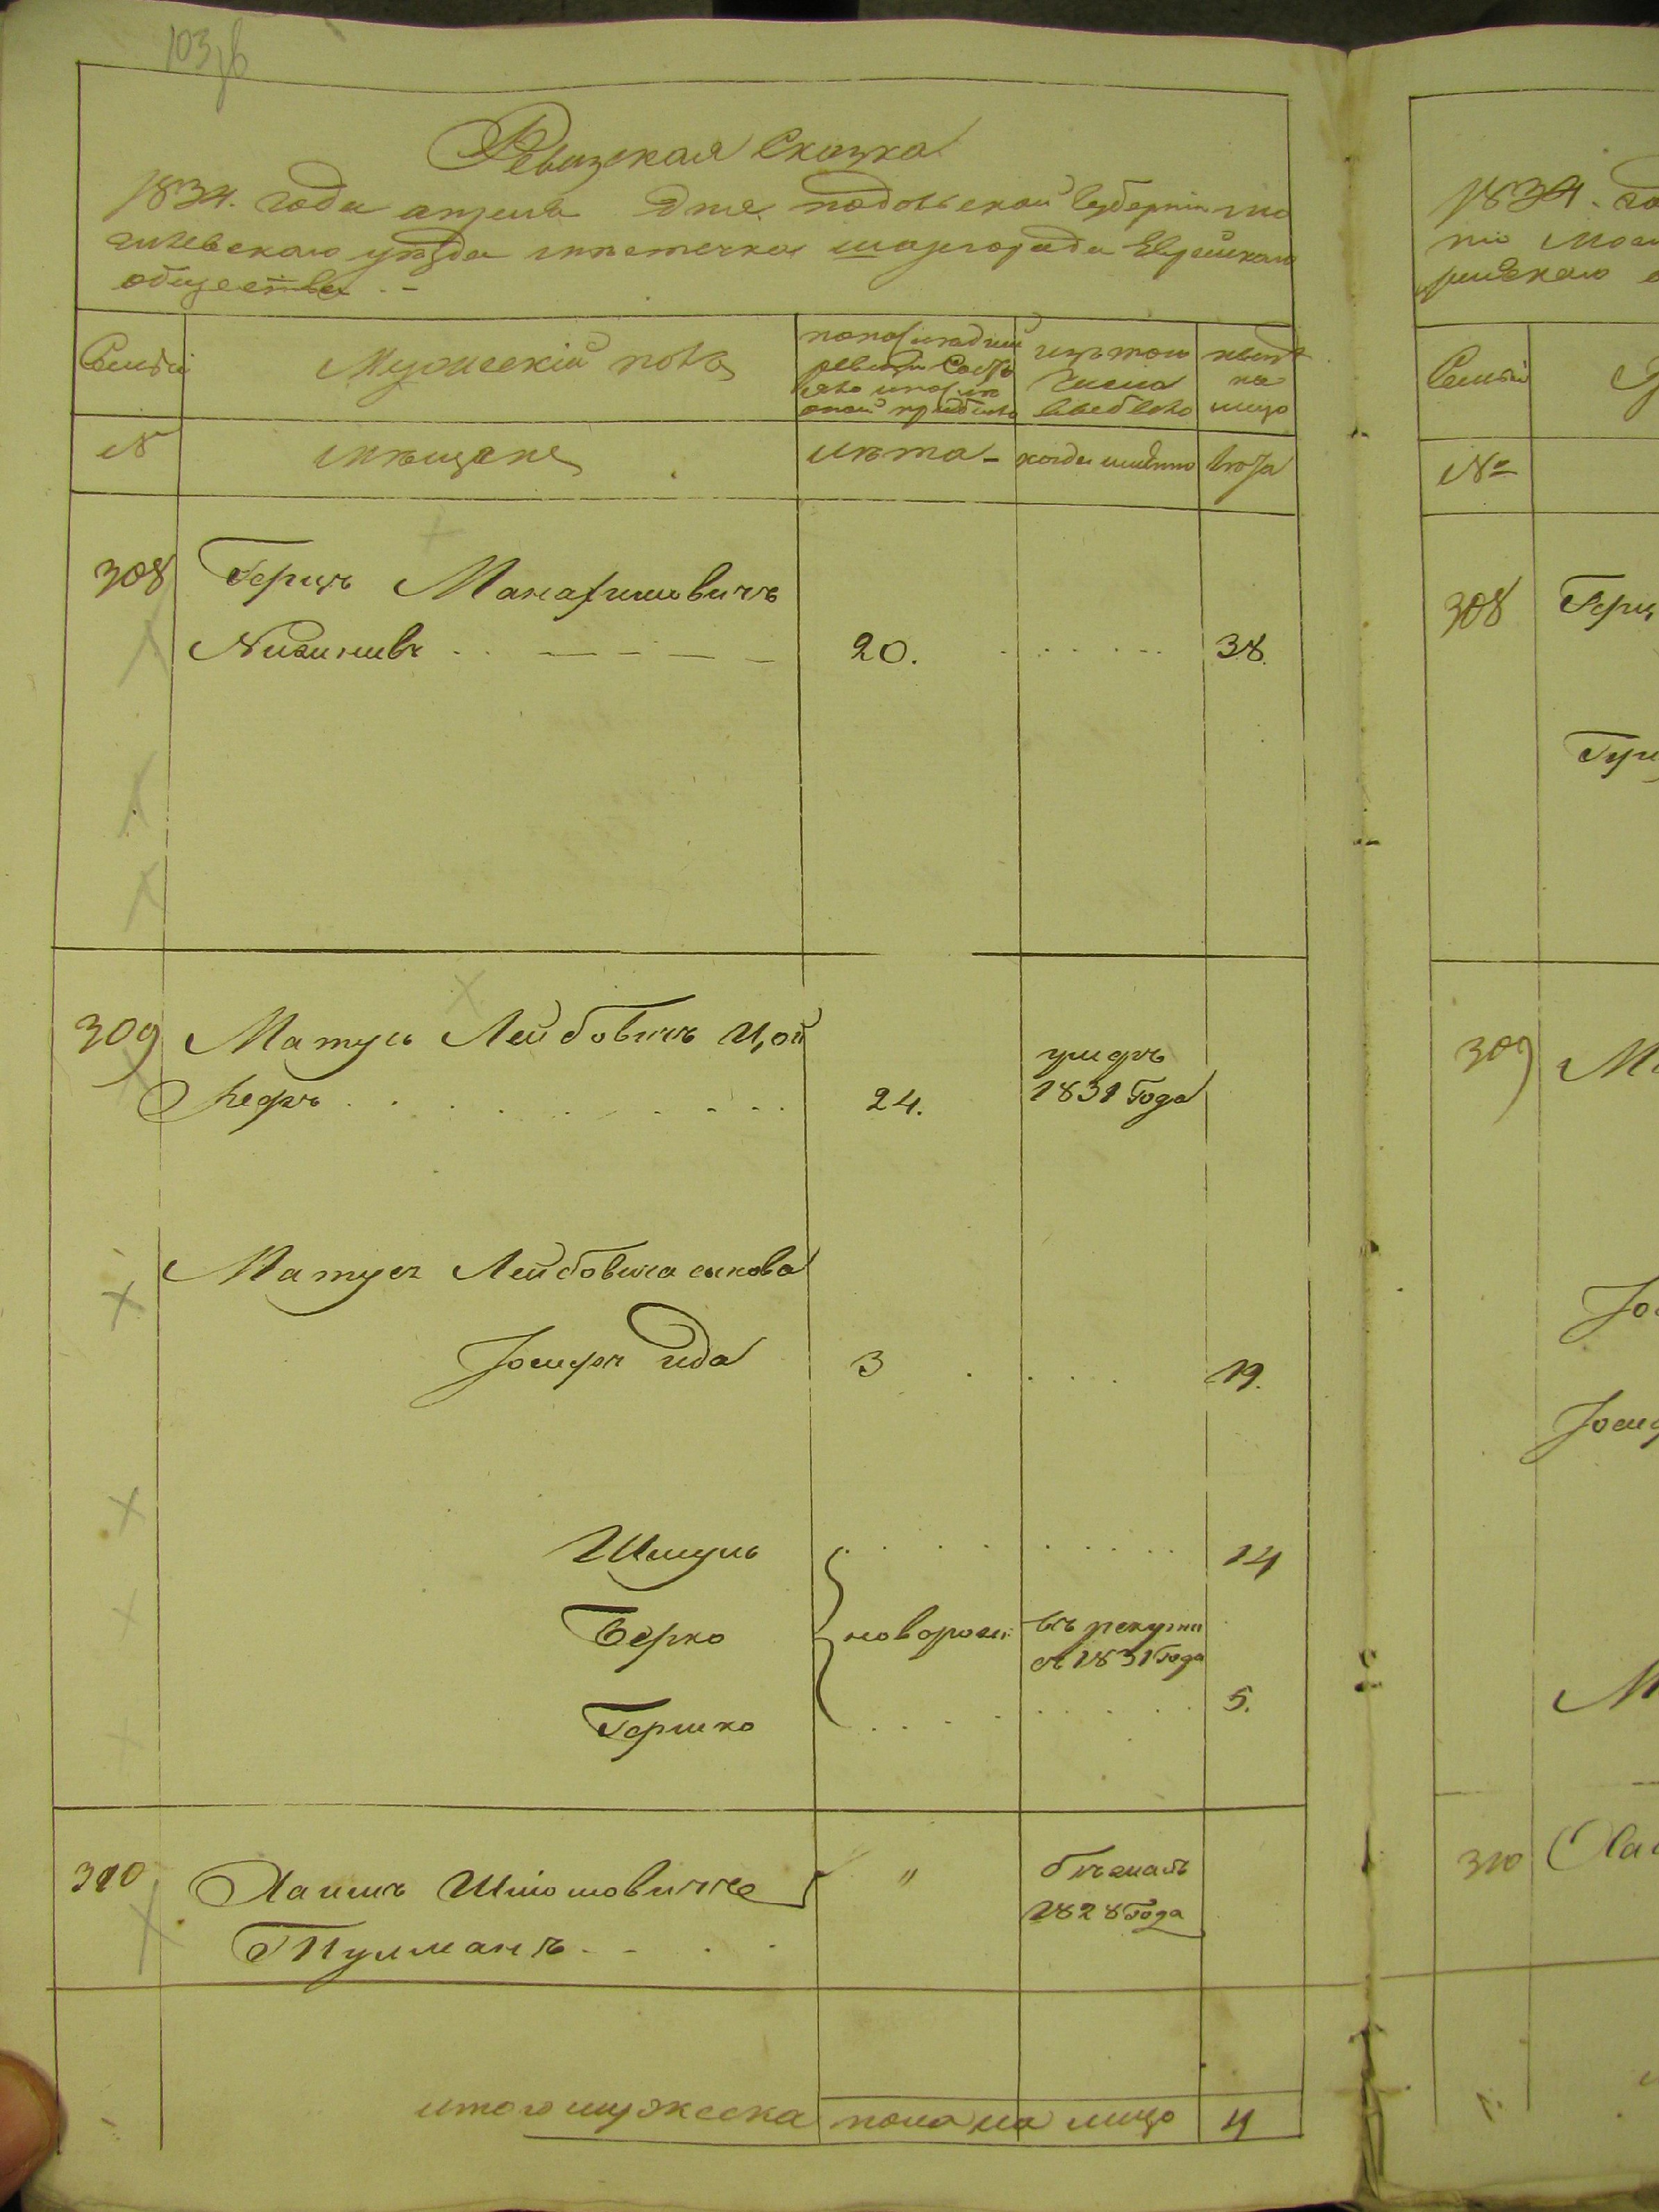 103 об
Ревизская Сказка
1834. года апреля дня подольской Губернии мо
гилевскаго уѣзда мѣстечка шаргорода Еврейскаго
общества. -
Семьи
Мужескій полъ
по последней
ревизіи Состо
яло и после
оной прибыло
изъ того
Числа
выбыло
нынѣ
на
лицо
№
мѣщане
лѣта -
когда имянно
лѣта
308
Герцъ
20.
38.
309
Матусъ Лейбовичъ Цой
24.
умеръ
1831 Года
Матуса Лейбовича сынова
Іосифъ Юда
3
19.
Шмуль
14
Берко
новорож:
въ рекруты
1831 Года
Гершко
5.
310
Хаимъ
Тулманъ
"
бѣжалъ
1828 Года
итого мужеска пола на лицо
4
1834. го
Семьи
№
308
Герц
309
М
Іо
Іоси
М
310
Хаи